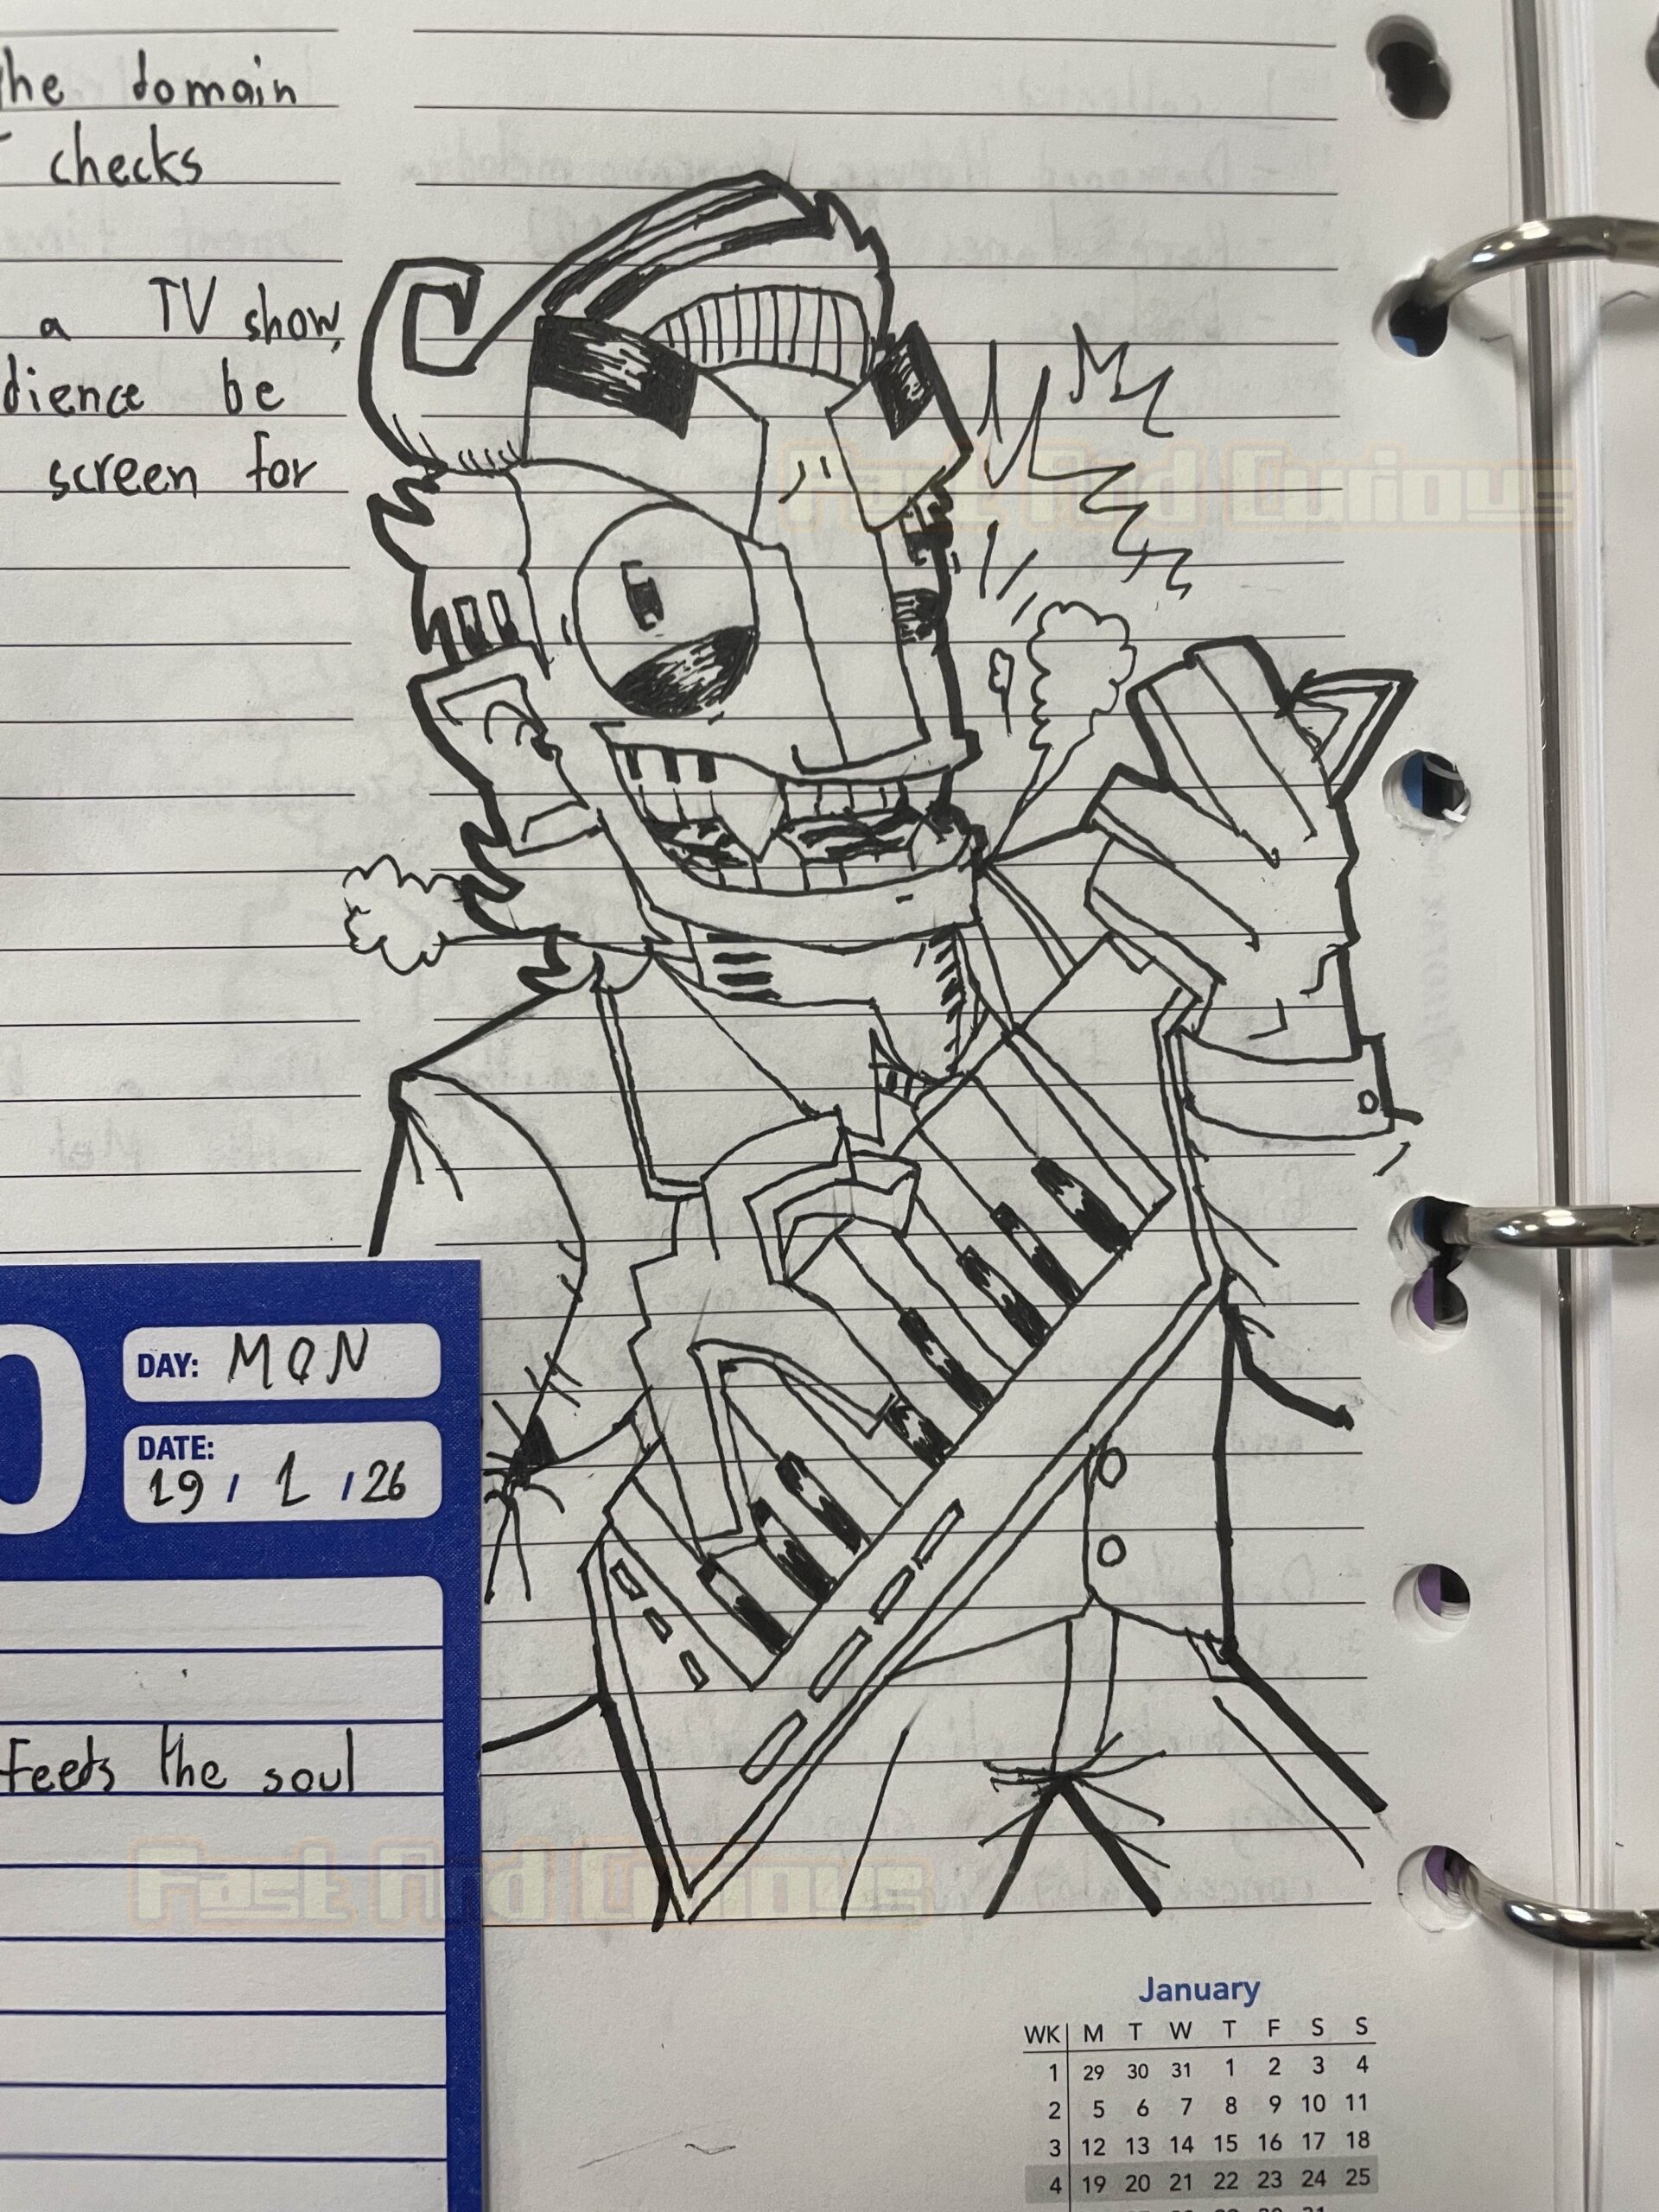 the domain
checks
a TV show,
be
screen for
Fast And Curious
DAY: MON
DATE:
19 / 1 / 26
Feeds the soul
Fast And Curious
January
WK M T W T F S S
1 29 30 31 1 2 3 4
2 5 6 7 8 9 10 11
3 12 13 14 15 16 17 18
4 19 20 21 22 23 24 25